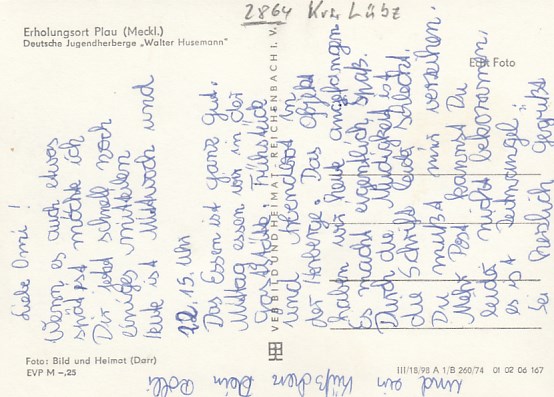 2864 Krs. Lübz
Erholungsort Plau (Meckl.)
Deutsche Jugendherberge „Walter Husemann"
Echt Foto
Liebe Omi!
Wenn es auch etwas
spät ist möchte ich
Dir jetzt schnell noch
einiges mitteilen
heute ist Mittwoch und
22.15 Uhr
Das Essen ist ganz gut.
Mittag essen wir in der
Gaststätte, Frühstück
und Abendbrot in
der Herberge. Das Objekt
haben wir heute angefangen
Es macht eigentlich Spaß.
Durch die Müdigkeit ist
die Schrift leider schlecht.
Du mußt mir verzeihen.
Mehr Post kannst Du
leider nicht bekommen,
es ist Zeitmangel!
Sei herzlich gegrüßt
und ein Küßchen Dein
VEB BILD UND HEIMAT · REICHENBACH I. V.
Foto: Bild und Heimat (Darr)
EVP M –,25
III/18/98 A 1/B 260/74 01 02 06 167